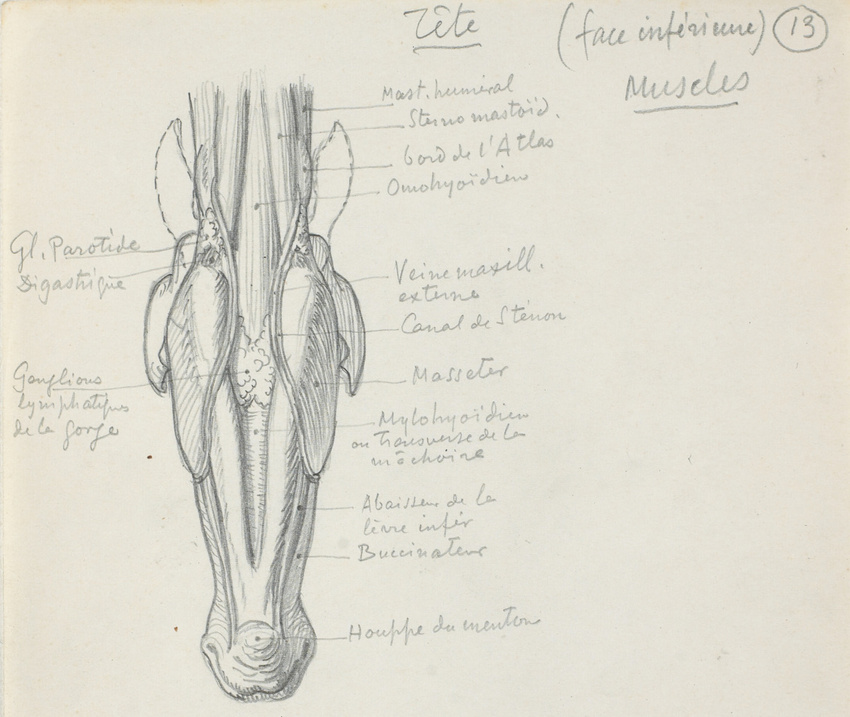 Tête
(face inférieure) 13
Muscles
Mast. huméral
Sterno mastoïd.
bord de l'Atlas
Omohyoïdien
Gl. Parotide
Digastrique
Veine maxill.
externe
Canal de Sténon
Ganglions
lymphatiques
de la gorge
Masseter
Mylohyoïdien
ou Transverse de la
mâchoire
Abaisseur de la
lèvre infér
Buccinateur
Houppe du menton